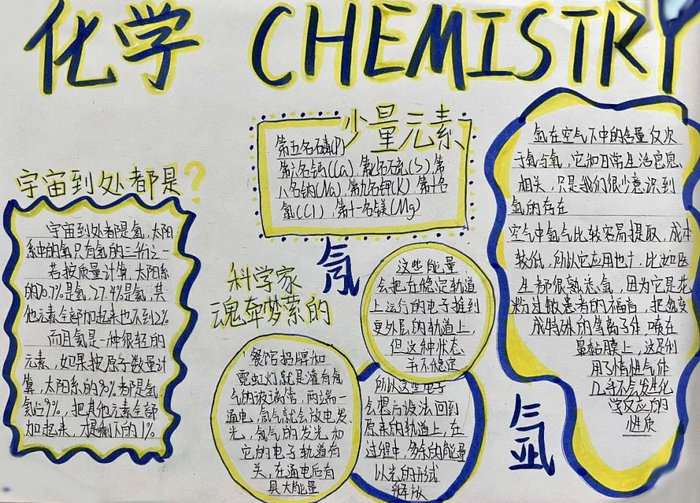 化学 CHEMISTRY
少量元素
第五名磷(P)
第六名钙(Ca) 第七名硫(S) 第
八名钠(Na) 第九名钾(K) 第十名
氯(Cl) 第十一名镁(Mg)
宇宙到处都是?
宇宙到处都是氢,太阳
系中的氦只有氢的三分之一
若按质量计算,太阳系
的70.7%是氢,27.4%是氦,其
他元素全部加起来也不到2%
而且氢是一种很轻的
元素,如果按原子数量计
算,太阳系的90%都是氢,
氦占9%,把其他元素全部
加起来,才剩下的1%
科学家
魂牵梦萦的
氖
这些能量
会把在稳定轨道
上运行的电子推到
更外层的轨道上,
但这种状态
并不稳定
餐馆招牌和
霓虹灯就是灌有氖
气的玻璃管,两端一
通电,氖气就会放电发
光,氖气的发光和
它的电子轨道有
关,在通电后有
具大能量
所以这些电子
会想方设法回到
原来的轨道上,在
过程中,多余的能量
以光的形式
释放
氩
氩在空气中的含量仅次
于氮与氧,它和日常生活息息
相关,只是我们很少意识到
氩的存在
空气中氩气比较容易提取,成本
较低,所以它应用也广,比如医
生都很熟悉氩气,因为它是花
粉过敏患者的福音,把氩变
成特殊的等离子体 喷在
鼻黏膜上,这是利
用了惰性气体
几乎不会发生化
学反应的
性质